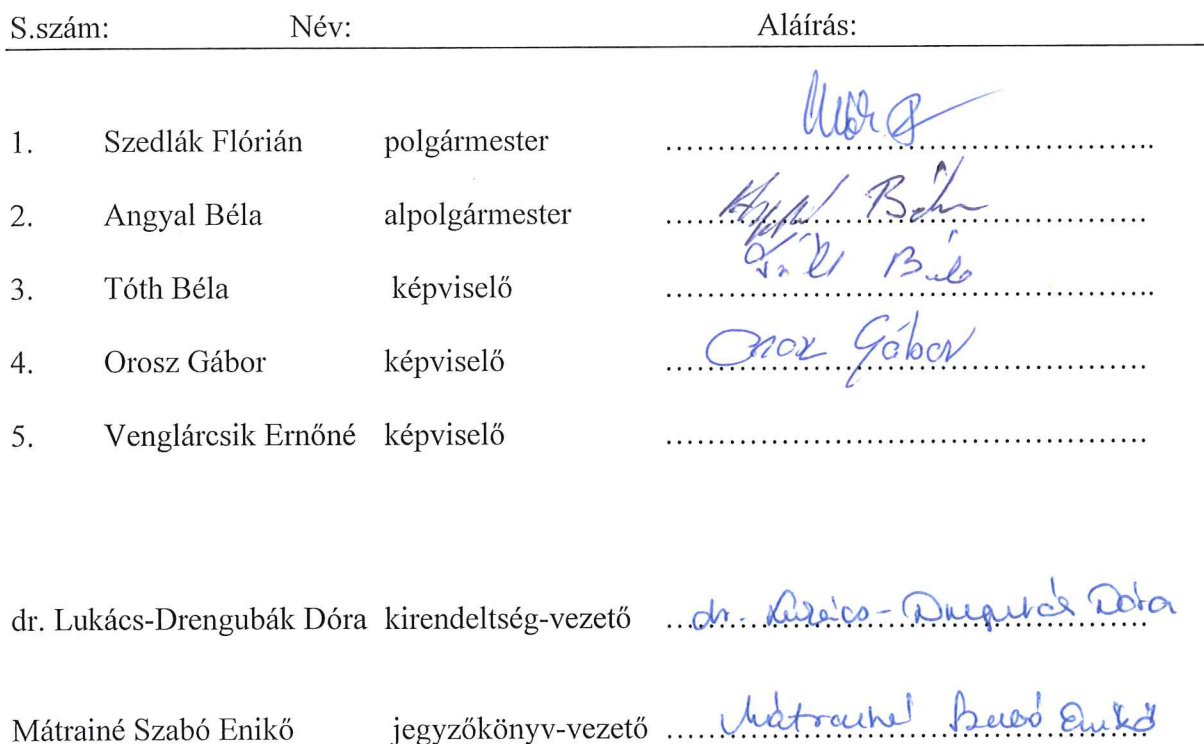 S.szám: Név: Aláírás:
1. Szedlák Flórián polgármester ................................................
2. Angyal Béla alpolgármester ................................................ Béla
3. Tóth Béla képviselő ................................................ Tóth Béla
4. Orosz Gábor képviselő ................................................ Orosz Gábor
5. Venglárcsik Ernőné képviselő ................................................
dr. Lukács-Drengubák Dóra kirendeltség-vezető ................................................ dr. Lukács-Drengubák Dóra
Mátrainé Szabó Enikő jegyzőkönyv-vezető ................................................ Mátrainé Szabó Enikő